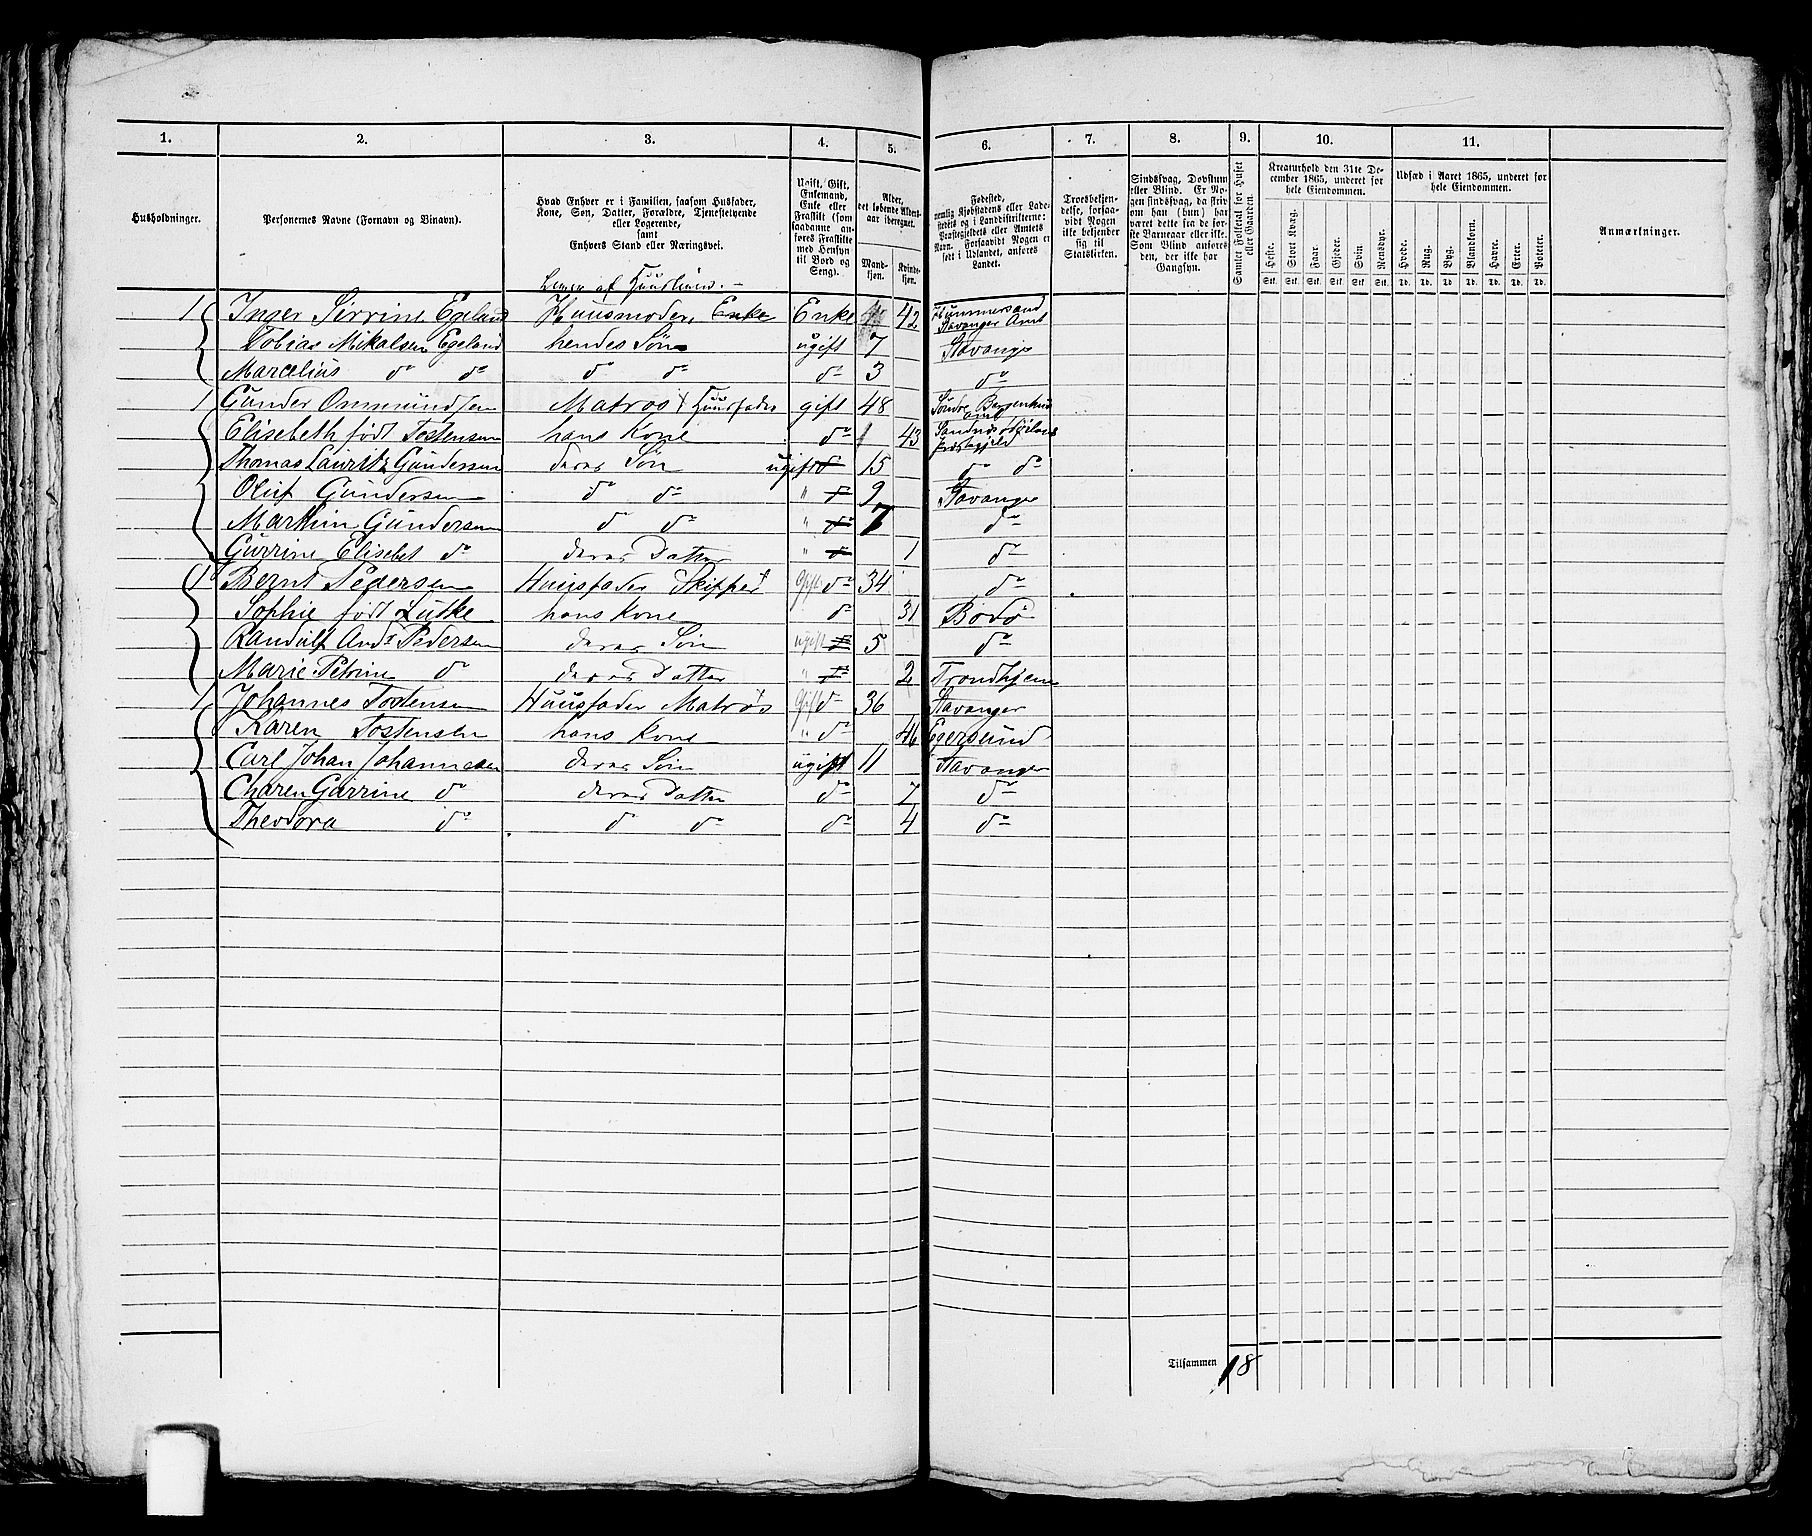 1. 2. 3. 4. 5. 6. 7. 8. 9. 10. 11.
Husholdninger.
Personernes Navne (Fornavn og Binavn).
Hvad Enhver er i Familien, saasom Husfader,
Kone, Søn, Datter, Forældre, Tjenestetyende
eller Logerende,
samt
Enhvers Stand eller Næringsvei.
Ugift, Gift,
Enkemand,
Enke eller
Fraskilt (som
saadanne an-
føres Fraskilte
med Hensyn
til Bord og
Seng).
Alder,
det løbende Alders-
aar iberegnet.
Mand-
kjøn.
Kvinde-
kjøn.
Fødested,
nemlig Kjøbstadens eller Lade-
stedets og i Landdistrikterne:
Præstegjeldets eller Amtets
Navn. Forsaavidt Nogen er
født i Udlandet, anføres
Landet.
Troesbekjen-
delse, forsaa-
vidt Nogen
ikke bekjender
sig til
Statskirken.
Sindssvag, Døvstum
eller Blind. Er No-
gen sindssvag, da skriv
om han (hun) har
været dette fra de før-
ste Barneaar eller ikke.
Som Blind anføres
den, der ikke har
Gangsyn.
Samlet Folketal for Huset
eller Gaarden.
Kreaturhold den 31te De-
cember 1865, underet for
hele Eiendommen.
Heste. Stort Kvæg. Faar. Gjeder. Svin. Rensdyr.
Stk. Stk. Stk. Stk. Stk. Stk.
Udsæd i Aaret 1865, underet for
hele Eiendommen.
Hvede. Rug. Byg. Blandkorn. Havre. Erter. Poteter.
Td. Td. Td. Td. Td. Td. Td.
Anmærkninger.
1 Inger Sirrine Egeland Huusmoder, Enke Enke 42 Hummersand Stavanger Amt
Tobias Mikalsen Egeland hendes Søn ugift 7 Stavanger
Marcelius do do do do do 3 do
1 Gunder Ommundsen Matros Huusfader gift 48 Søndre Bergenhuus amt
Elisebeth født Tostensen hans Kone do 43
Thomas Lauritz Gundersen deres Søn ugift do 15 do do
Oluf Gundersen do do " do 9 Stavanger
Marthin Gundersen do do " do 7 do
Gurrine Elisebet do deres Datter " do 1 do
1 Bernt Pedersen Huusfader Skipper Gift do 34 do
Sophie født Lutke hans Kone do 31 Bodø
Randulf Ands Pedersen deres Søn ugift do 5 do
Marie Petrine do deres Datter " do 2 Trondhjem
1 Johannes Tostensen Huusfader Matros Gift do 36 Stavanger
Karen Tostensen hans Kone " do 46 Egersund
Carl Johan Johannesen deres Søn ugift 11 Stavanger
Charen Gurrine do deres Datter do 7 do
Theodora do do do do 4 do
Tilsammen 18